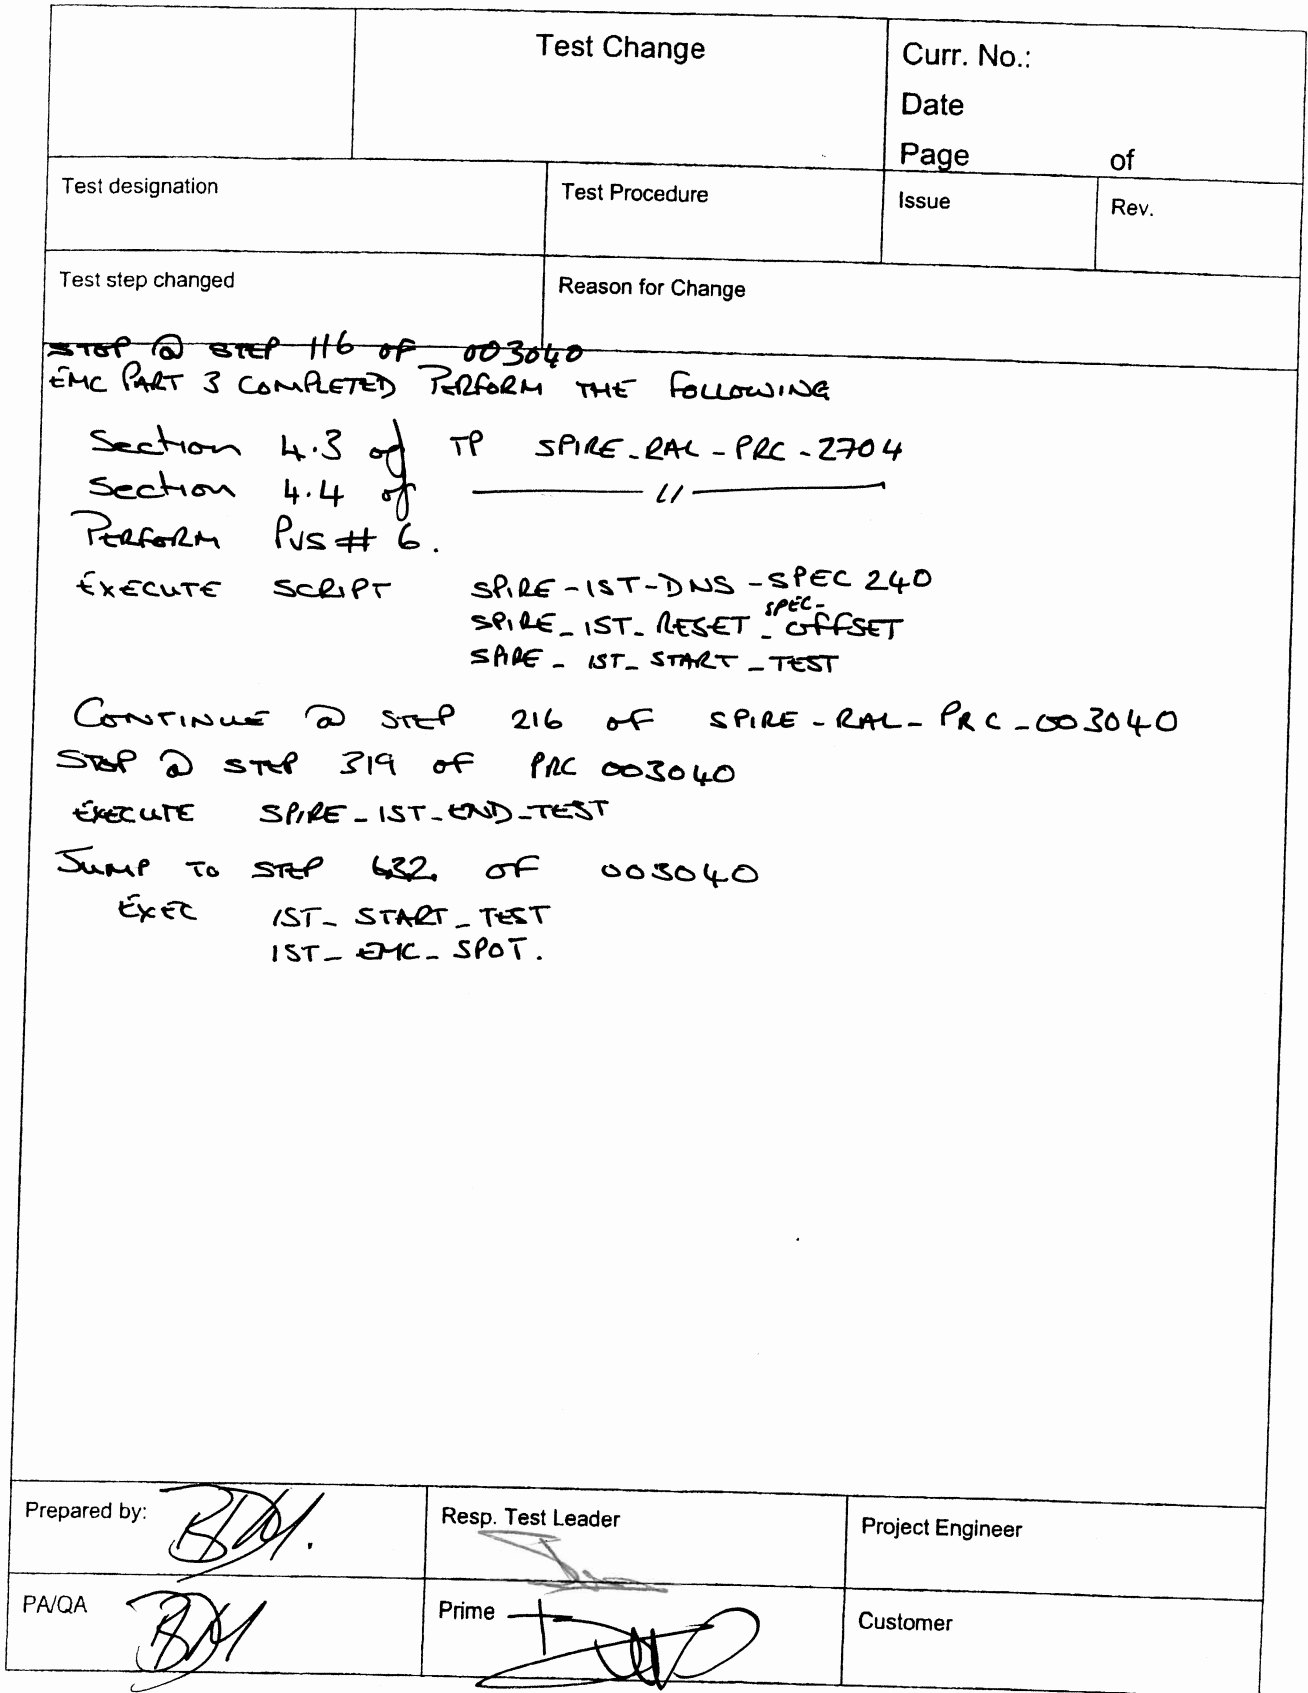 Test Change
Curr. No.:
Date
Page of
Test designation
Test Procedure
Issue
Rev.
Test step changed
Reason for Change
STOP @ STEP 116 OF 003040
EMC PART 3 COMPLETED PERFORM THE FOLLOWING
Section 4.3 of TP SPIRE_RAL-PRC-2704
Section 4.4 of —— 〃 ——
PERFORM PVS# 6.
EXECUTE SCRIPT SPIRE-IST-DNS-SPEC 240
SPIRE_IST_RESET_SPEC-OFFSET
SPIRE_IST_START_TEST
CONTINUE @ STEP 216 OF SPIRE-RAL-PRC-003040
STOP @ STEP 319 OF PRC 003040
EXECUTE SPIRE-IST-END-TEST
JUMP TO STEP 632 OF 003040
EXEC IST_START_TEST
IST_EMC_SPOT.
Prepared by:
Resp. Test Leader
Project Engineer
PA/QA
Prime
Customer